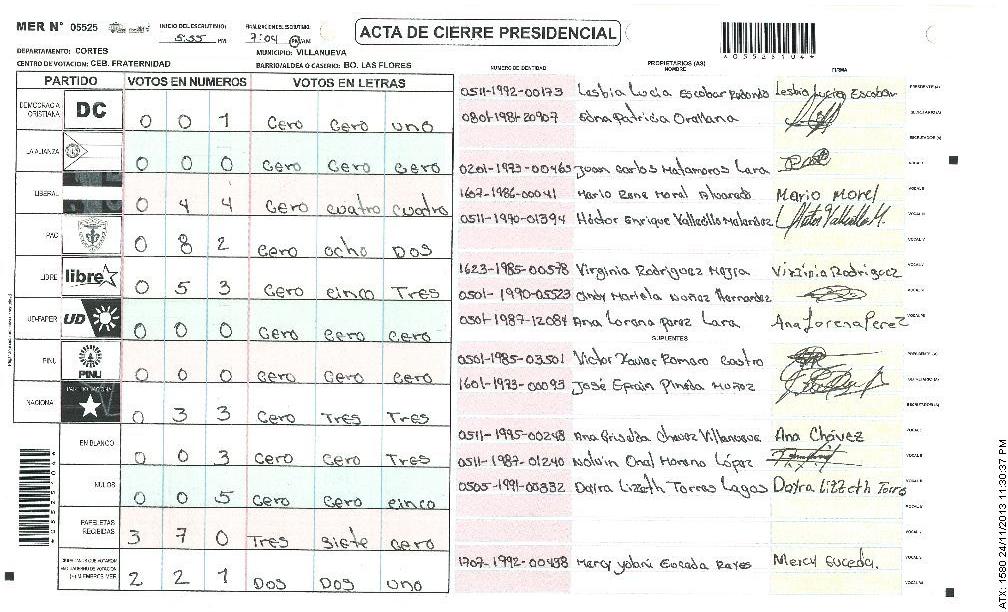 MER N° 05525
INICIO DEL ESCRUTINIO: 5:55 PM
FINALIZACION ESCRUTINIO: 7:04 PM/AM
ACTA DE CIERRE PRESIDENCIAL
*05525104*
DEPARTAMENTO: CORTES
MUNICIPIO: VILLANUEVA
CENTRO DE VOTACION: CEB. FRATERNIDAD
BARRIO/ALDEA O CASERIO: BO. LAS FLORES
PARTIDO VOTOS EN NUMEROS VOTOS EN LETRAS
DEMOCRACIA CRISTIANA DC 0 0 1 Cero Cero uno
LA ALIANZA 0 0 0 Cero Cero Cero
LIBERAL 0 4 4 Cero cuatro cuatro
PAC 0 8 2 Cero ocho Dos
LIBRE libre 0 5 3 Cero cinco Tres
UD-FAPER UD 0 0 0 Cero cero cero
PINU PINU 0 0 0 Cero Cero Cero
NACIONAL 0 3 3 Cero Tres Tres
EN BLANCO 0 0 3 Cero Cero Tres
NULOS 0 0 5 Cero Cero cinco
PAPELETAS RECIBIDAS 3 7 0 Tres siete cero
2 2 1 Dos Dos uno
NUMERO DE IDENTIDAD PROPIETARIOS (AS) NOMBRE FIRMA
0511-1992-00173 Lesbia Lucia Escobar Redondo Lesbia Lucia Escobar PRESIDENTE (A)
0801-1981-20907 Edna Patricia Orellana SECRETARIO (A)
ESCRUTADOR (A)
0201-1973-00465 Juan Carlos Matamoros Lara VOCAL I
1607-1986-00041 Mario Rene Morel Alvarado Mario Morel VOCAL II
0511-1990-01394 Héctor Enrique Vallecillo Melendez VOCAL III
VOCAL IV
1623-1985-00578 Virginia Rodriguez Mejia Virginia Rodriguez VOCAL V
0501-1990-05523 Cindy Mariela Nuñez Hernandez
0501-1987-12084 Ana Lorena perez Lara Ana Lorena Perez
SUPLENTES
0501-1985-03501 Victor Xavier Romero Castro PRESIDENTE (A)
1601-1973-00093 José Efrain Pineda Muñoz SECRETARIO (A)
ESCRUTADOR (A)
0511-1995-00248 Ana Griselda Chavez Villanueva Ana Chávez VOCAL I
0511-1987-01240 Nolvin Onal Moreno López VOCAL II
0505-1991-00332 Dayra Lizeth Torres Lagos Dayra Lizeth Torres VOCAL III
VOCAL IV
VOCAL V
1707-1992-00438 Mercy yolani Euceda Reyes Mercy Euceda.
ATX: 1580 24/11/2013 11:30:37 PM